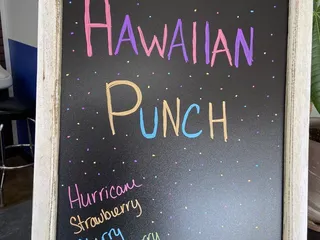 HAWAIIAN
PUNCH
Hurricane
Strawberry